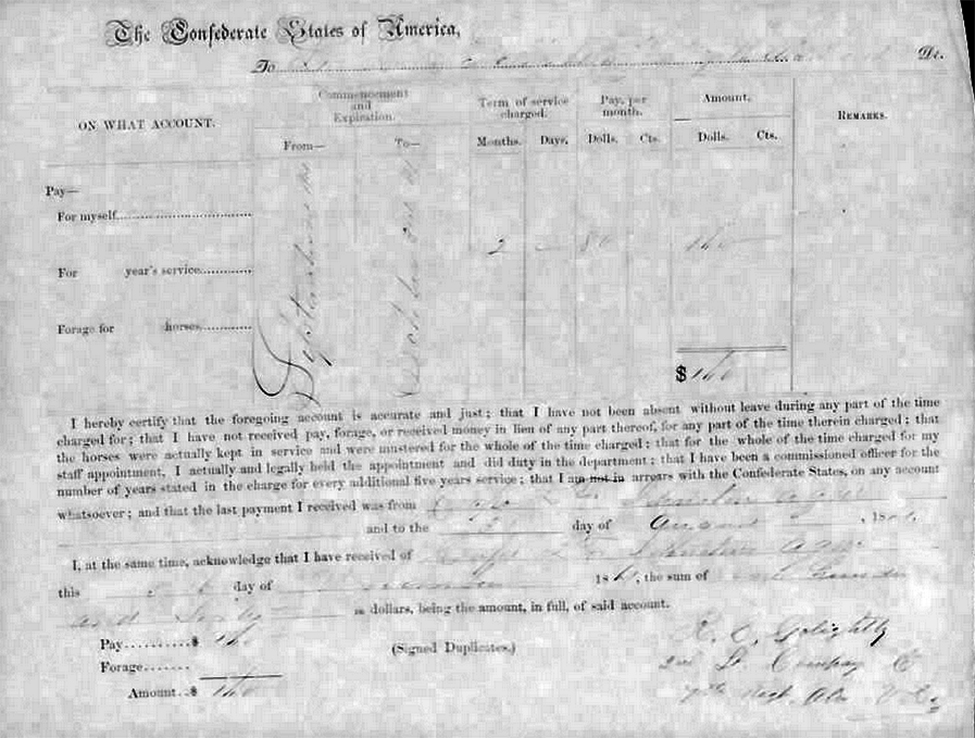 The Confederate States of America,
To Dr.
ON WHAT ACCOUNT.
Commencement and Expiration.
Term of service charged.
Pay, per month.
Amount.
REMARKS.
From—
To—
Months.
Days.
Dolls.
Cts.
Dolls.
Cts.
Pay—
For myself
September 1st
October 31st
2 — 80 160
For year's service
Forage for horses
$ 160
I hereby certify that the foregoing account is accurate and just; that I have not been absent without leave during any part of the time
charged for; that I have not received pay, forage, or received money in lieu of any part thereof, for any part of the time therein charged; that
the horses were actually kept in service and were mustered for the whole of the time charged; that for the whole of the time charged for my
staff appointment, I actually and legally held the appointment and did duty in the department; that I have been a commissioned officer for the
number of years stated in the charge for every additional five years service; that I am not in arrears with the Confederate States, on any account
whatsoever; and that the last payment I received was from
and to the 31 day of August , 186
I, at the same time, acknowledge that I have received of
this day of 1861, the sum of
and Sixty dollars, being the amount, in full, of said account.
Pay $ 160
(Signed Duplicates.)
R. C. Golightly
Forage
2nd Lt. Company C
Amount $ 160
7th Regt. Ala. Vols